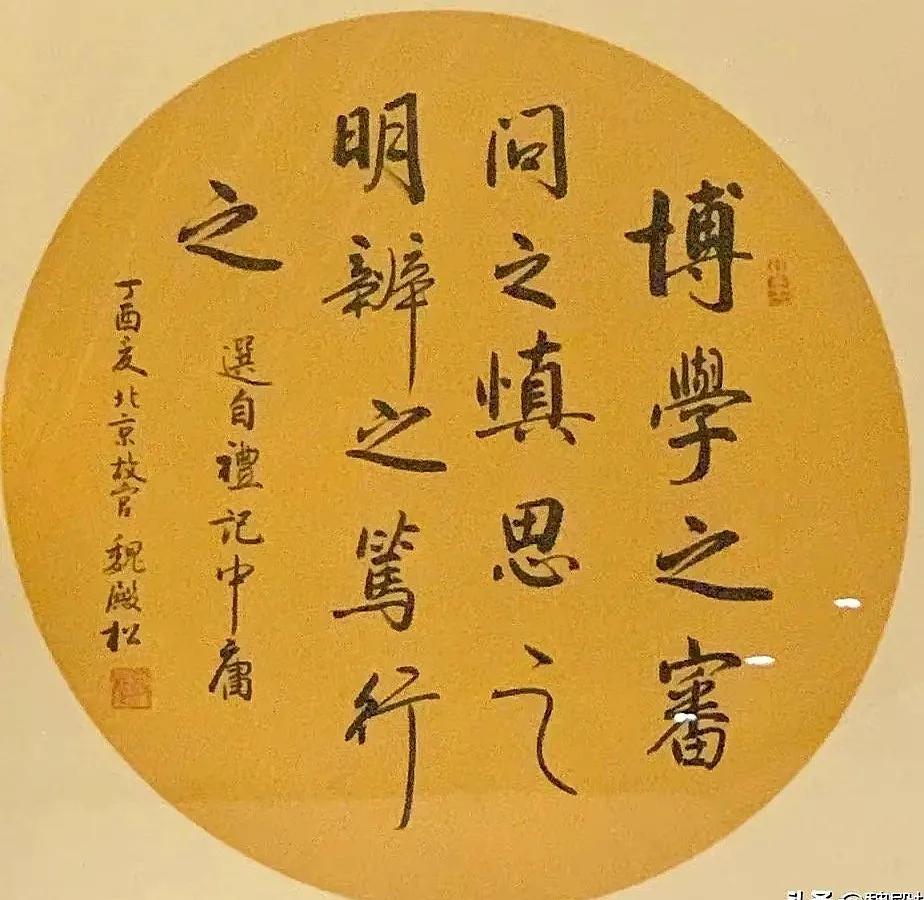 博學之審
問之慎思之
明辨之篤行
之
選自禮記中庸
丁酉夏北京故宫魏殿松